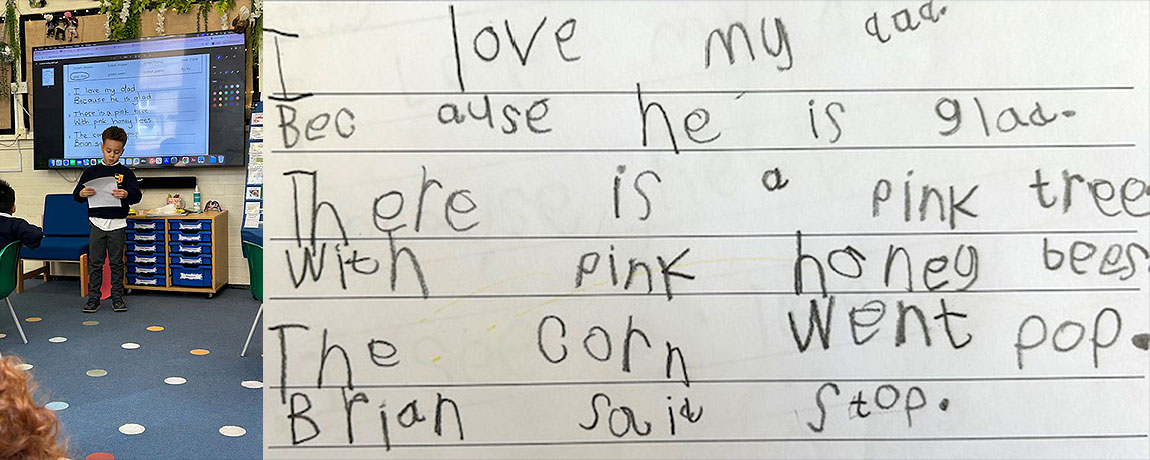 I love my dad
Because he is glad
There is a pink tree
With pink honey bees
The co
Brian s
I love my dad.
Because he is glad.
There is a pink tree
With pink honey bees.
The corn Went pop.
Brian said Stop.